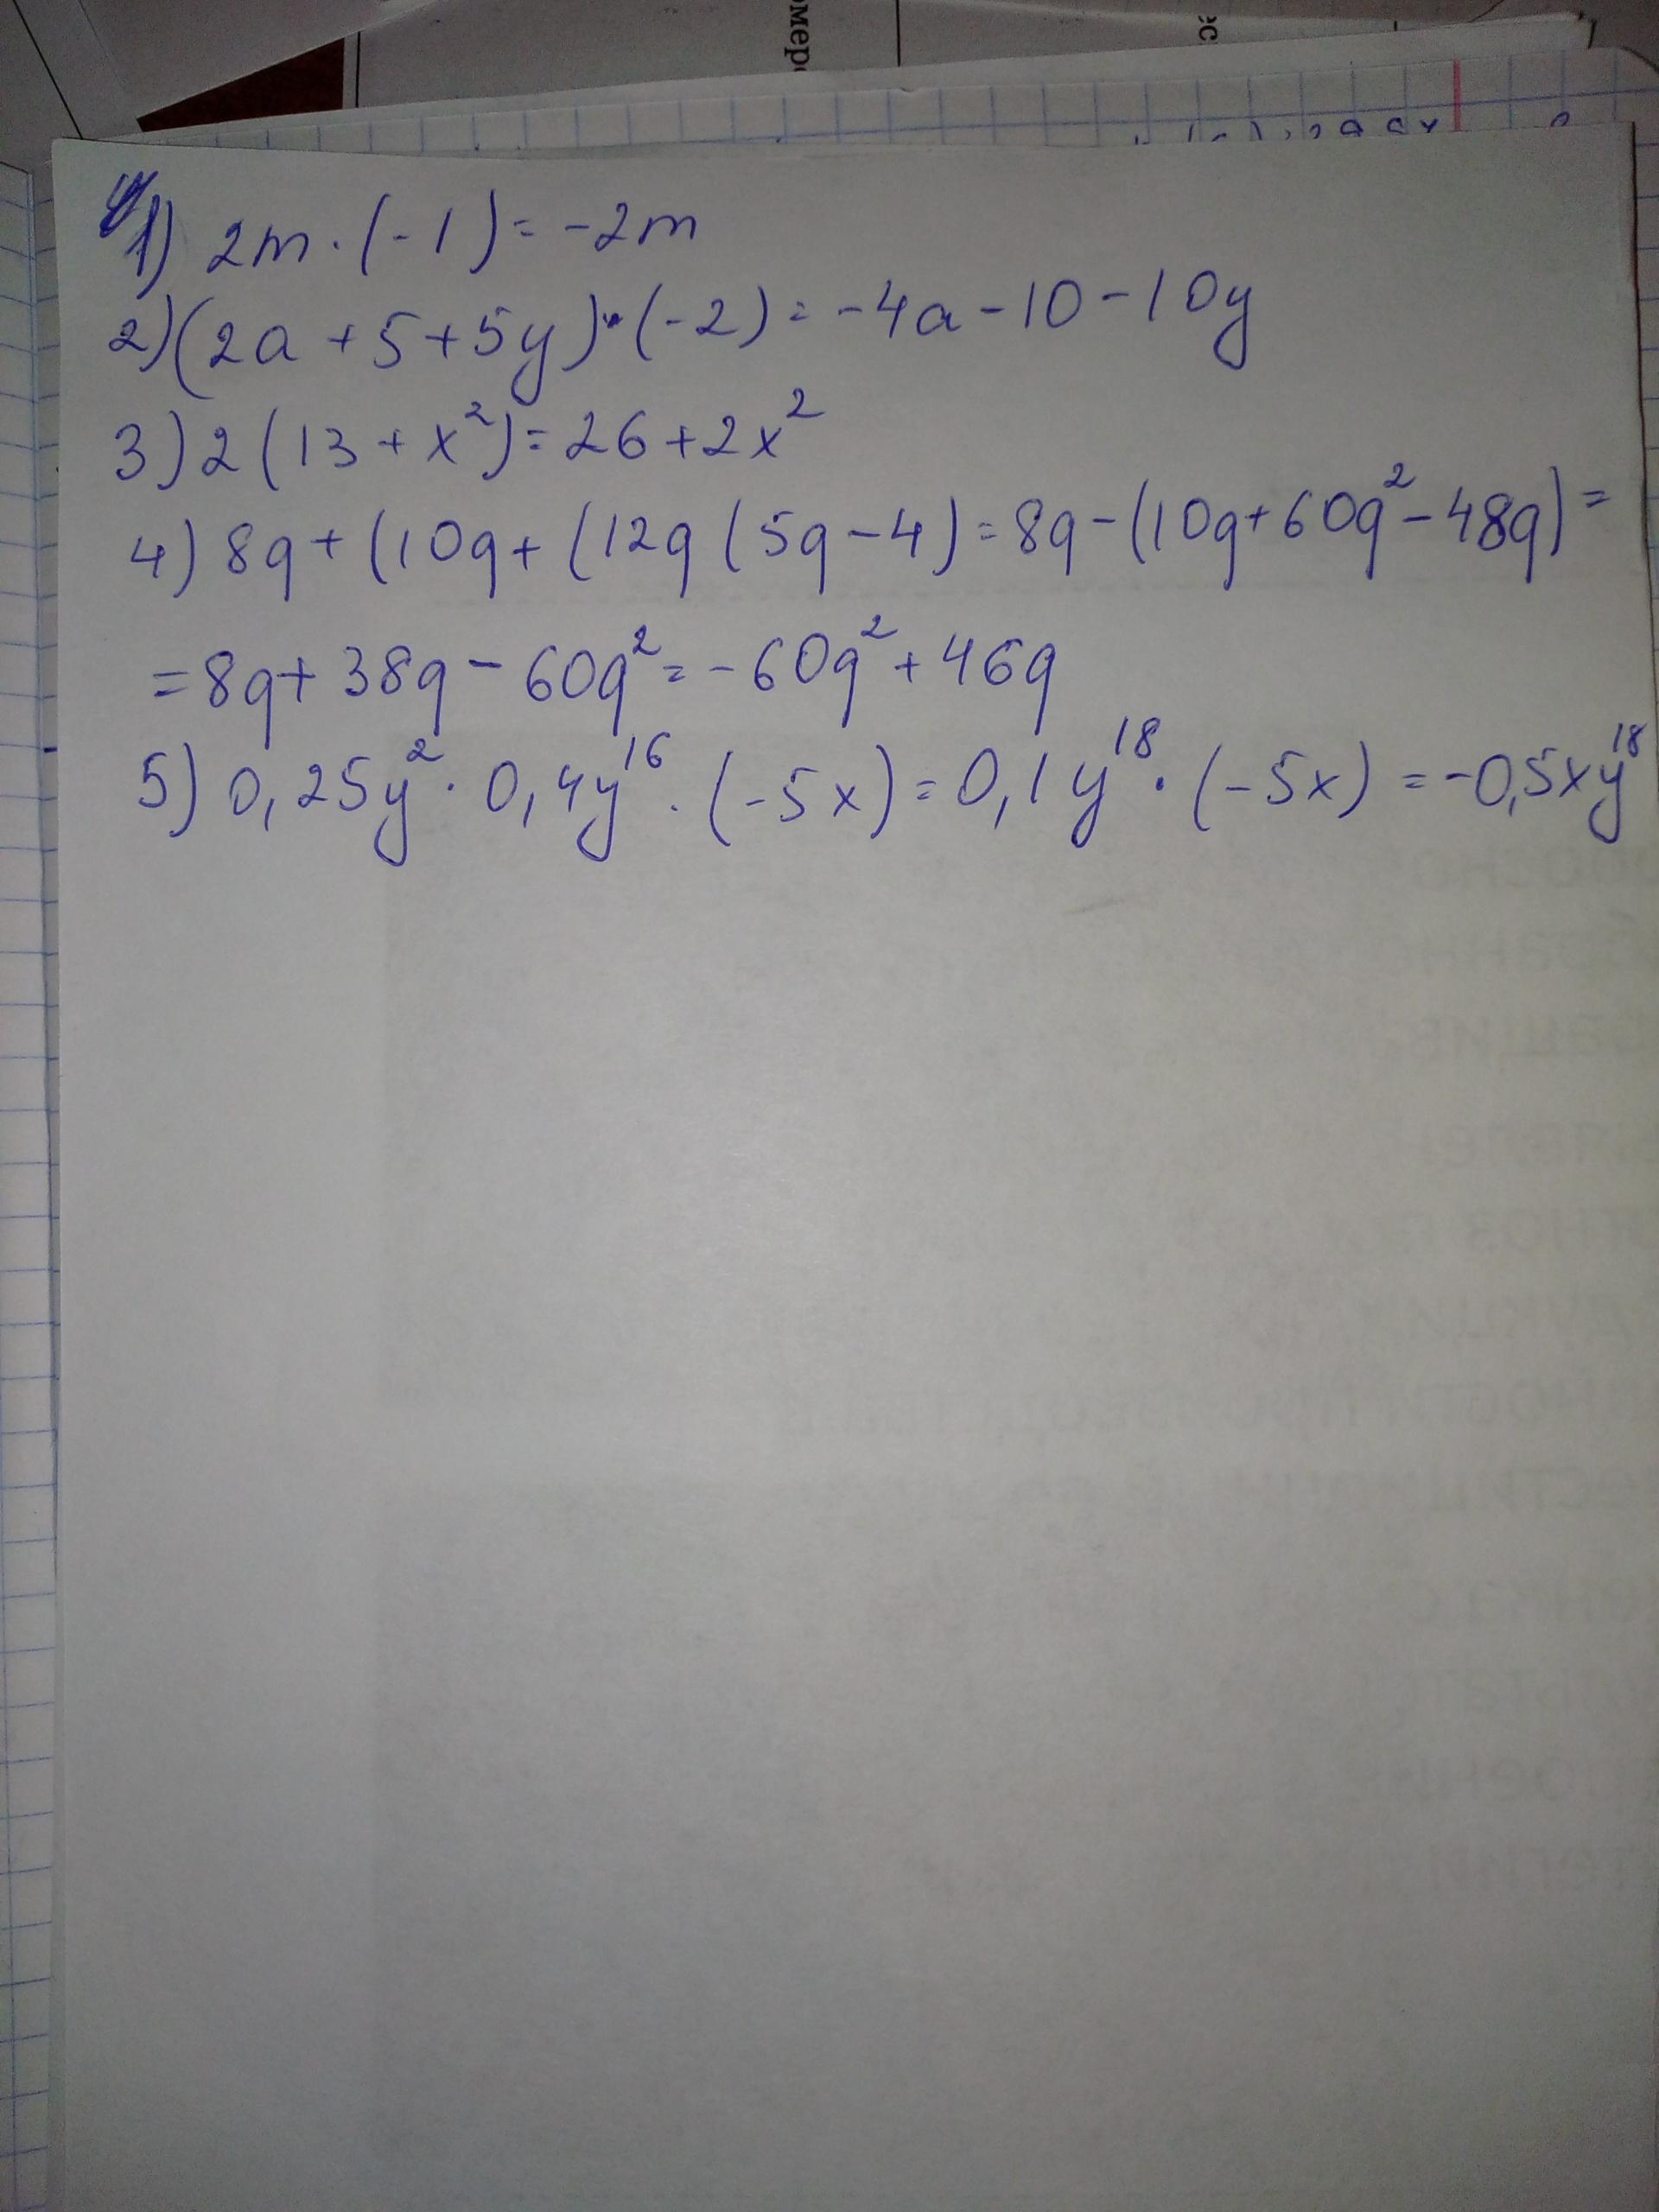 омер
ес
1) 2m · (-1) = -2m
2) (2a + 5 + 5y) · (-2) = -4a - 10 - 10y
3) 2 (13 + x²) = 26 + 2x²
4) 8q + (10q + (12q (5q - 4) = 8q - (10q + 60q² - 48q) =
= 8q + 38q - 60q² = -60q² + 46q
5) 0,25y² · 0,4y¹⁶ · (-5x) = 0,1y¹⁸ · (-5x) = -0,5xy¹⁸